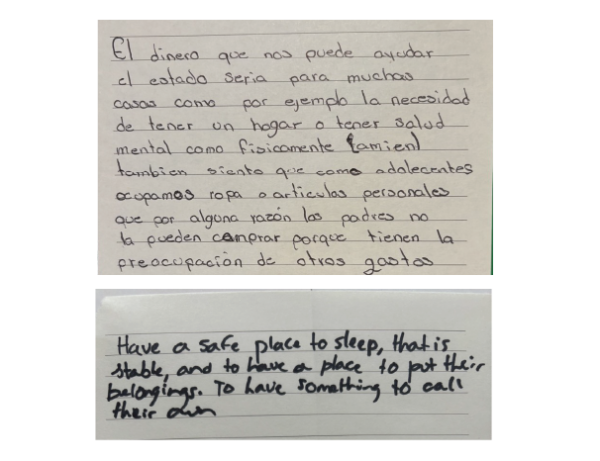 El dinero que nos puede ayudar
el estado seria para muchas
cosas como por ejemplo la necesidad
de tener un hogar o tener salud
mental como fisicamente (amien)
tambien siento que como adolecentes
ocupamos ropa o articulos personales
que por alguna razón los padres no
la pueden comprar porque tienen la
preocupación de otros gastos
Have a safe place to sleep, that is
stable, and to have a place to put their
belongings. To have something to call
their own